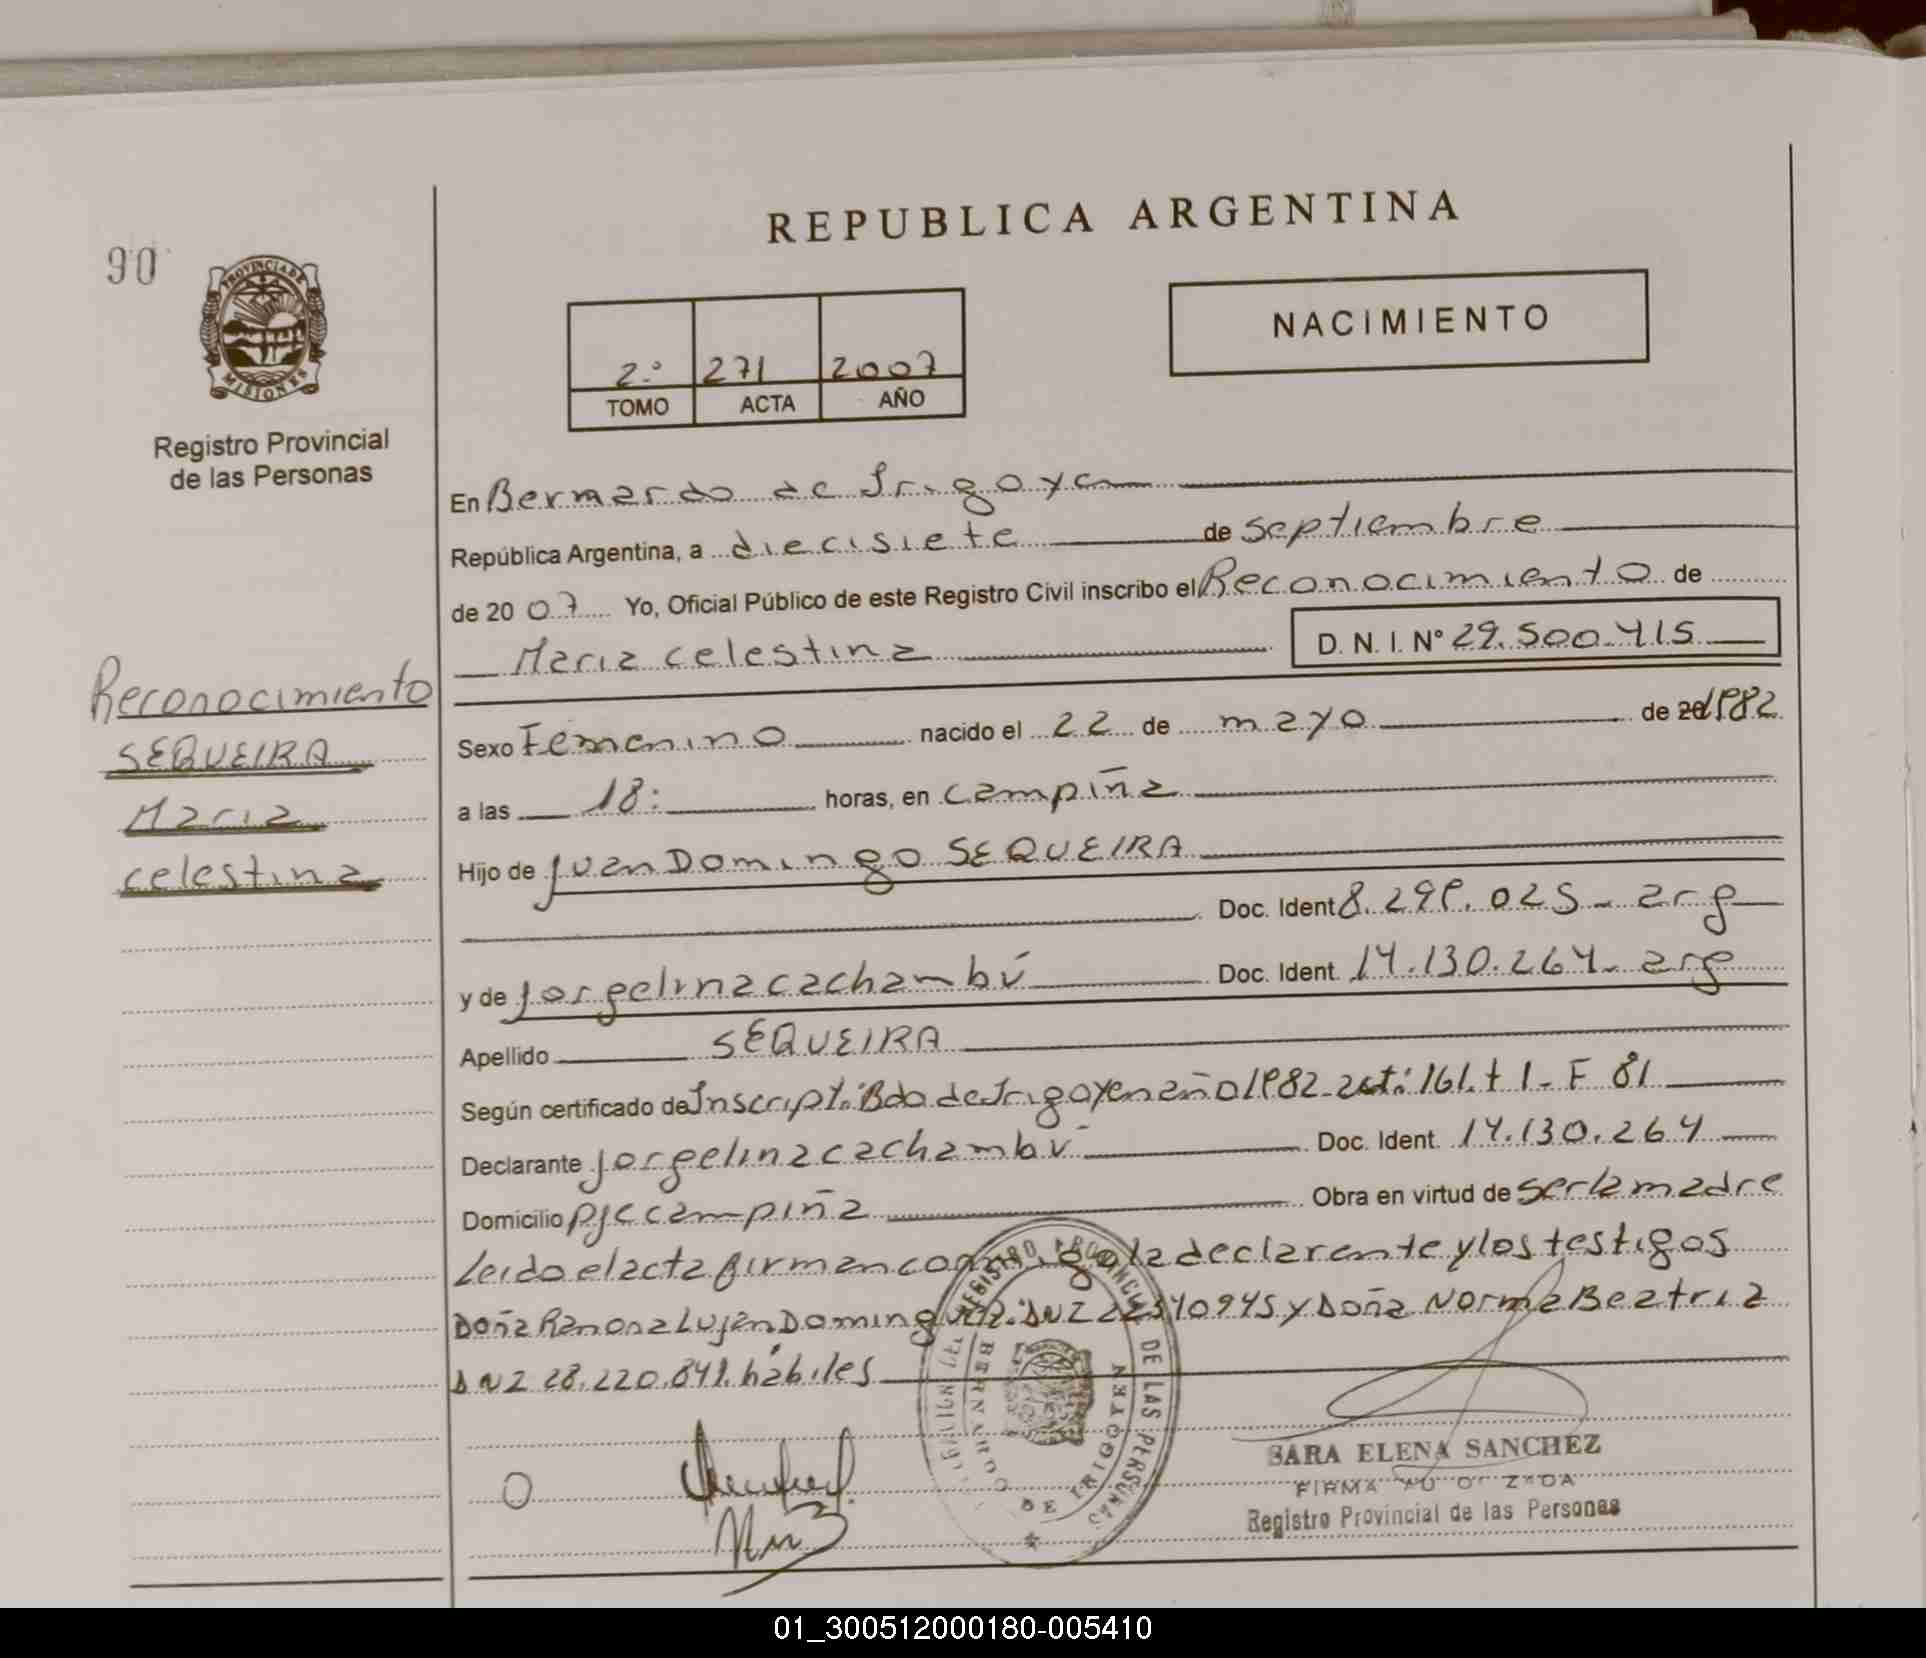 REPUBLICA ARGENTINA
90
PROVINCIA DE
MISIONES
Registro Provincial
de las Personas
NACIMIENTO
2.° 271 2007
TOMO ACTA AÑO
En Bernardo de Irigoyen
República Argentina, a diecisiete de septiembre
de 2007 Yo, Oficial Público de este Registro Civil inscribo el Reconocimiento de
Maria celestina D. N. I. N° 29.500.415
Reconocimiento
SEQUEIRA
Maria
celestina
Sexo Femenino nacido el 22 de mayo de 20 1982
a las 18: horas, en campiña
Hijo de Juan Domingo SEQUEIRA
Doc. Ident 8.299.025 - arg
y de Jorgelina cachambú Doc. Ident. 14.130.264 - arg
Apellido SEQUEIRA
Según certificado de Inscript: Bdo de Irigoyen año 1982 - act: 161. t 1 - F 81
Declarante Jorgelina cachambú Doc. Ident. 14.130.264
Domicilio Pje campiña Obra en virtud de ser la madre
Leido el acta firman conmigo la declarante y los testigos
Doña Ramona Luján Dominguez. DNI 22340945 y Doña Norma Beatriz
DNI 28.220.841. hábiles
REGISTRO PROVINCIAL DE LAS PERSONAS
BERNARDO DE IRIGOYEN
SARA ELENA SANCHEZ
FIRMA AUTORIZADA
Registro Provincial de las Personas
01_300512000180-005410